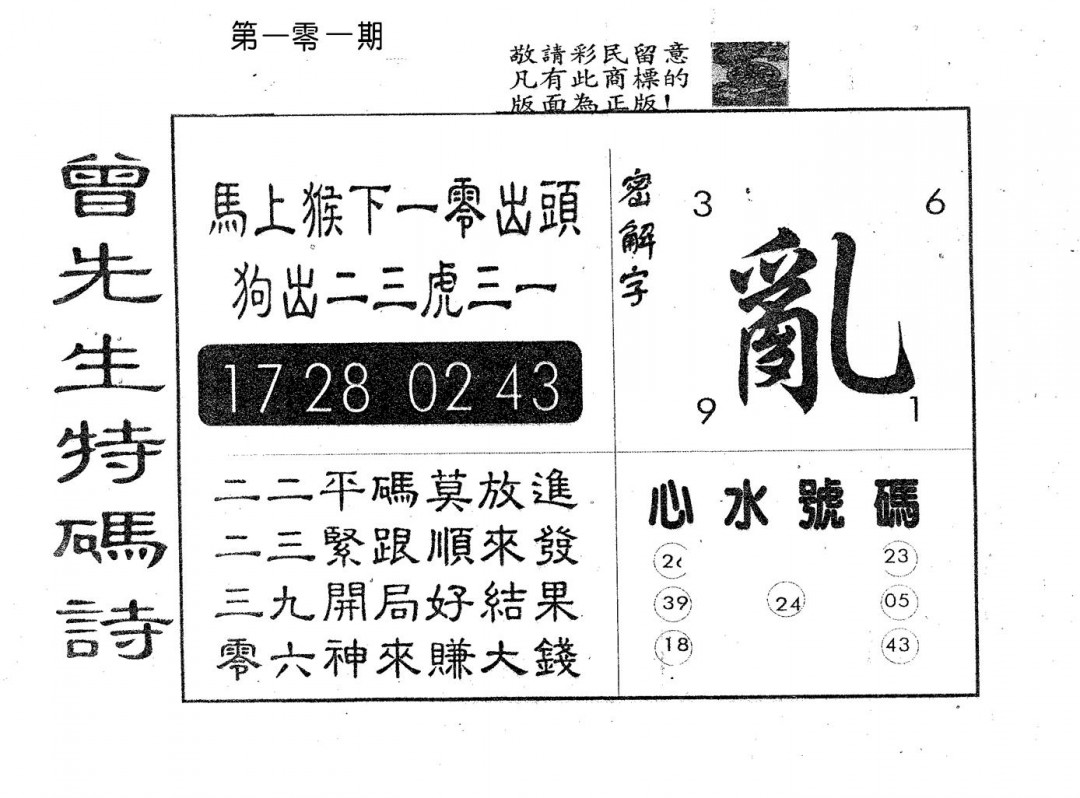 第一零一期
敬請彩民留意
凡有此商標的
版面為正版!
曾先生特碼詩
馬上猴下一零出頭
狗出二三虎三一
17 28 02 43
二二平碼莫放進
二三緊跟順來發
三九開局好結果
零六神來賺大錢
密解字
3 6
亂
9 1
心水號碼
26 23
39 24 05
18 43